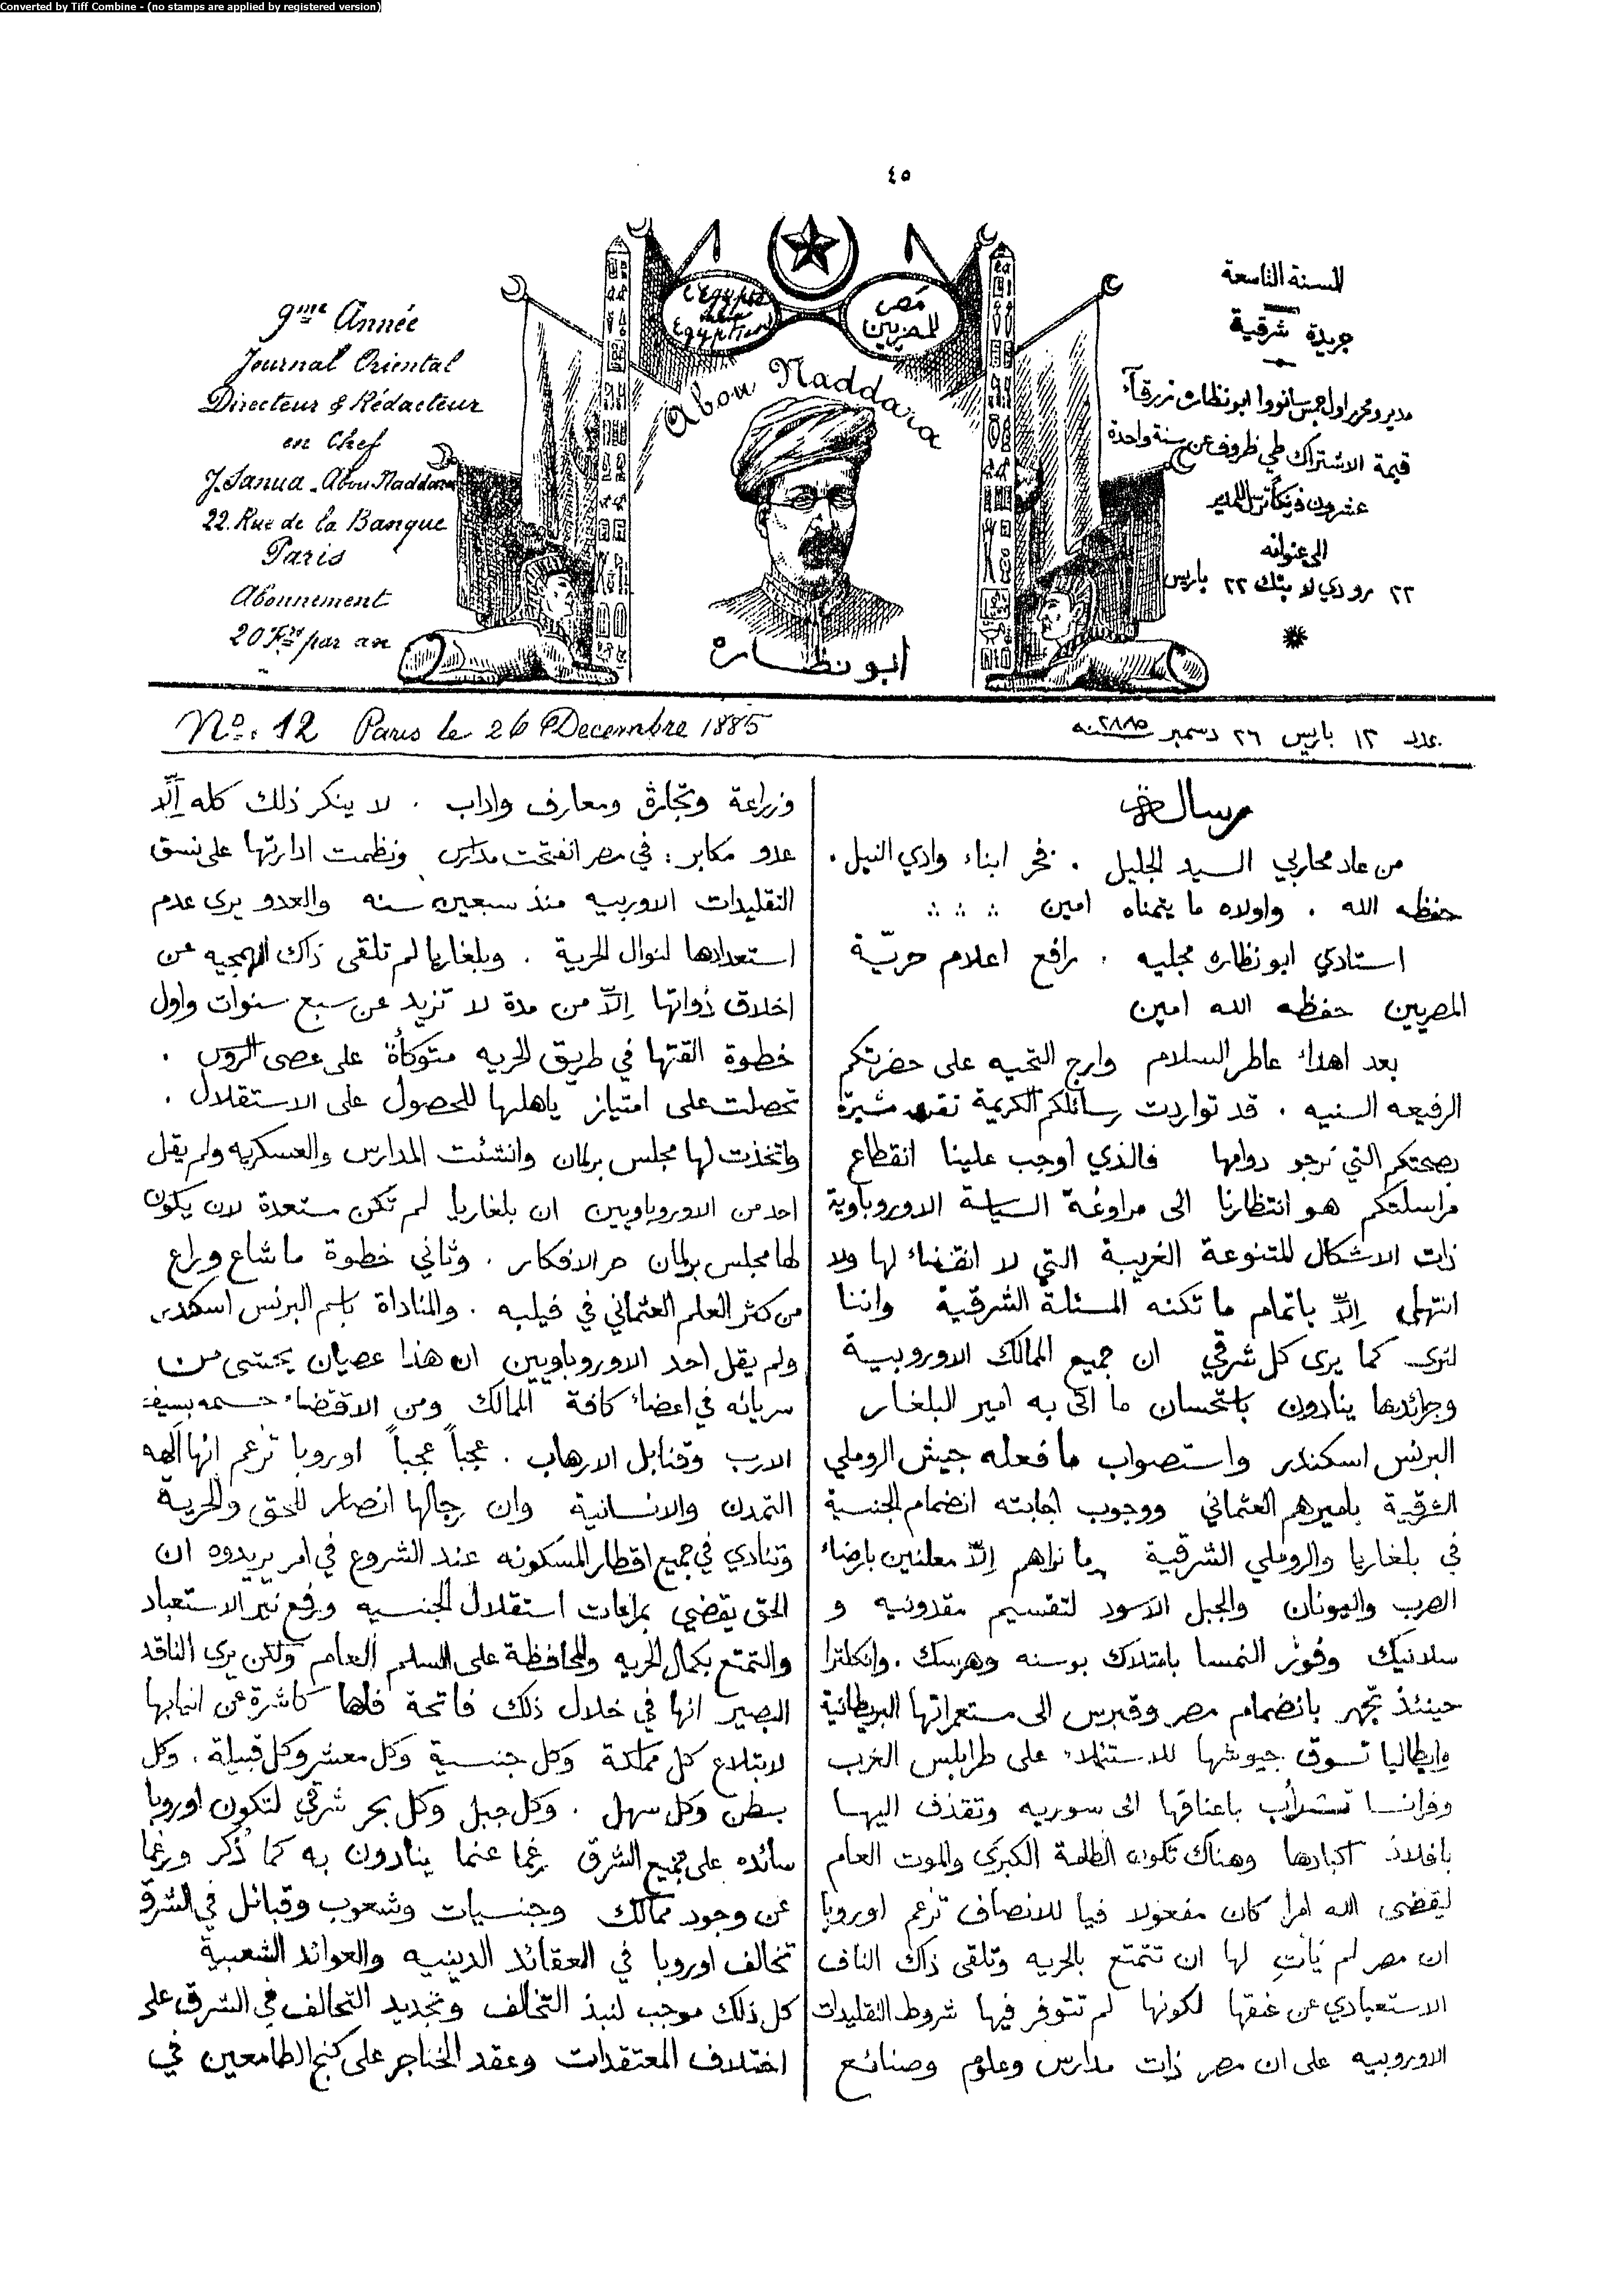 Converted by Tiff Combine - (no stamps are applied by registered version)
٤٥
9me Année
Journal Oriental
Directeur & Rédacteur
en Chef
J. Sanua _ Abou Naddara
22. Rue de la Banque
Paris
Abonnement
20 Frs par an
L'Egypte
Egyptiens
مصر
للمصريين
Abou Naddara
أبو نظارة
السنة التاسعة
جريدة شرقية
مدير ومحرر اول جمس سانووا ابو نظاره زرقآء
قيمة الاشتراك طي ظروف عن سنة واحدة
عشرون فرنكا ترسل للمدير
الى عنوانه
٢٢ رو دي لا بنك ٢٢ باريس
No. 12 Paris le 26 Decembre 1885
عدد ١٢ باريس ٢٦ دسمبر سنه
من عاد محاربي السيد الجليل . فخر ابناء وادي النيل .
حفظه الله . واولاه ما يتمناه امين
استادي ابو نظاره مجليه . رافع اعلام حريّة
المصريين حفظه الله امين
بعد اهداء عاطر السلام وارج التحيه على حضرتكم
الرفيعه السنيه . قد تواردت رسائلكم الكريمة مشيرة
بصحتكم التي نرجو دوامها فالذي اوجب علينا انقطاع
مراسلتكم هو انتظارنا الى مراوغة السياسة الاوروباوية
ذات الاشكال المتنوعة الغريبة التي لا انقضاء لها ولا
انتهى إلاّ باتمام ما تكنه المسئلة الشرقية واننا
لنرى كما يرى كل شرقي ان جميع الممالك الاوروبية
وجرائدها ينادون باستحسان ما اتى به امير البلغار
البرنس اسكندر واستصواب ما فعله جيش الروملي
الشرقية باميرهم العثماني ووجوب اجابته انضمام الجنسية
في بلغاريا والروملي الشرقية وما نراهم إلاّ معلنين بارضاء
الصرب واليونان والجبل الاسود لتقسيم مقدونيه و
سلانيك وفوز النمسا بامتلاك بوسنه وهرسك . وانكلترا
حينئذ تجهر بانضمام مصر وقبرس الى مستعمراتها البريطانية
وايطاليا تسوق جيوشها للاستيلاء على طرابلس الغرب
وفرانسا تشرأب باعناقها الى سوريه وتقذف اليها
بافلاذ اكبادها وهناك تكون الطامة الكبرى والموت العام
ليقضى الله امرا كان مفعولا فيا للانصاف تزعم اوروبا
ان مصر لم يأتِ لها ان تتمتع بالحريه وتلقى ذاك الناف
الاستعبادي عن عنقها لكونها لم تتوفر فيها شروط التقليدات
الاوروبيه على ان مصر ذات مدارس وعلوم وصنائع
وزراعة وتجارة ومعارف واداب . لا ينكر ذلك كله إلّا
عدو مكابر : في مصر انفتحت مدارس ونظمت ادارتها على نسق
التقليدات الاوربيه منذ سبعين سنه والعدو يرى عدم
استعدادها لنوال الحرية . وبلغاريا لم تلقى ذاك الهمجيه عن
اخلاق ذواتها إلاّ من مدة لا تزيد عن سبع سنوات واول
خطوة القتها في طريق الحريه متوكأة على عصى الروس .
تحصلت على امتياز ياهلها للحصول على الاستقلال .
واتخذت لها مجلس برلمان وانشئت المدارس والعسكريه ولم يقل
احد من الاوروباويين ان بلغاريا لم تكن مستعدة لان يكون
لها مجلس برلمان حر الافكار . وثاني خطوة ما شاع وراع
من كثر العلم العثماني في فيلبه . والمناداة باسم البرنس اسكندر
ولم يقل احد الاوروباويين ان هذا عصيان يخشى من
سريانه في اعضاء كافة الممالك ومن الاقتضاء حسمه بسيف
الارب وقنابل الارهاب . عجباً عجباً اوروبا تزعم انها آلهة
التمدن والانسانية وان رجالها انصار للحق والحرية
وتنادي في جميع اقطار المسكونه عند الشروع في امر يريدوه ان
الحق يقضي بمراعات استقلال الجنسيه ورفع نير الاستعباد
والتمتع بكمال الحريه والمحافظة على السلم العام ولكن يرى الناقد
البصير انها في خلال ذلك فاتحة فاها كاشرة عن انيابها
لابتلاع كل مملكة وكل جنسية وكل معشر وكل قبيلة . وكل
بطن وكل سهل . وكل جبل وكل بحر شرقي لتكون اوروبا
سائده على جميع الشرق رغما عنما ينادون به كما ذُكر ورغما
عن وجود ممالك وجنسيات وشعوب وقبائل في الشرق
تخالف اوروبا في العقائد الدينيه والعوائد الشعبية
كل ذلك موجب لنبذ التخالف وتجديد التحالف في الشرق على
اختلاف المعتقدات وعقد الخناجر على كبح الطامعين في